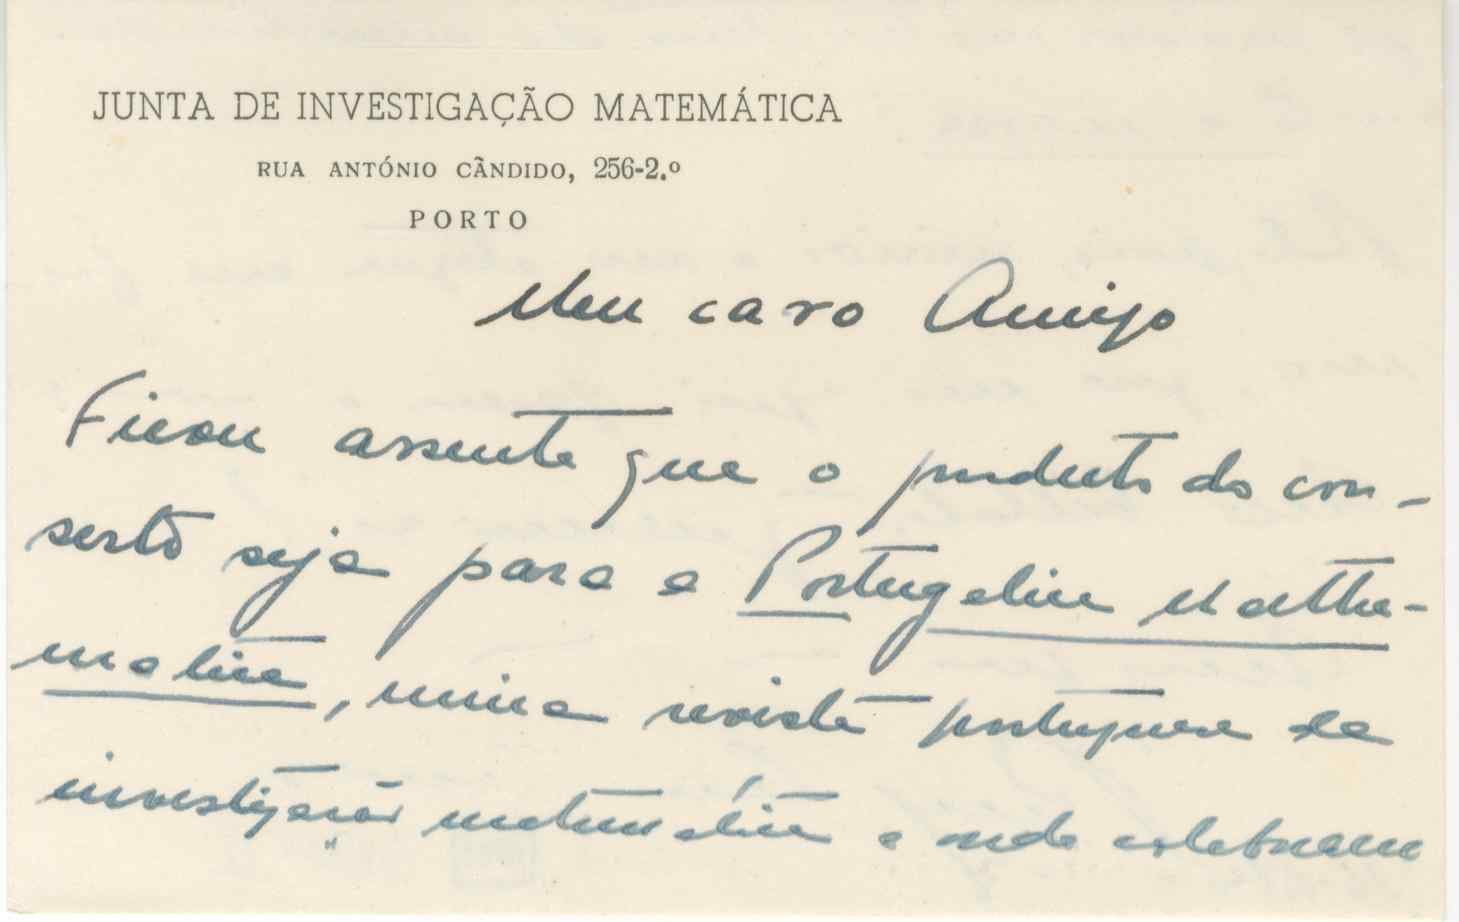 JUNTA DE INVESTIGAÇÃO MATEMÁTICA
RUA ANTÓNIO CÂNDIDO, 256-2.º
PORTO
Meu caro Amigo
Ficou assente que o producto do con-
serto seja para a Portugaliae Mathe-
matica, única revista portuguesa de
investigação matemática e onde colaboram